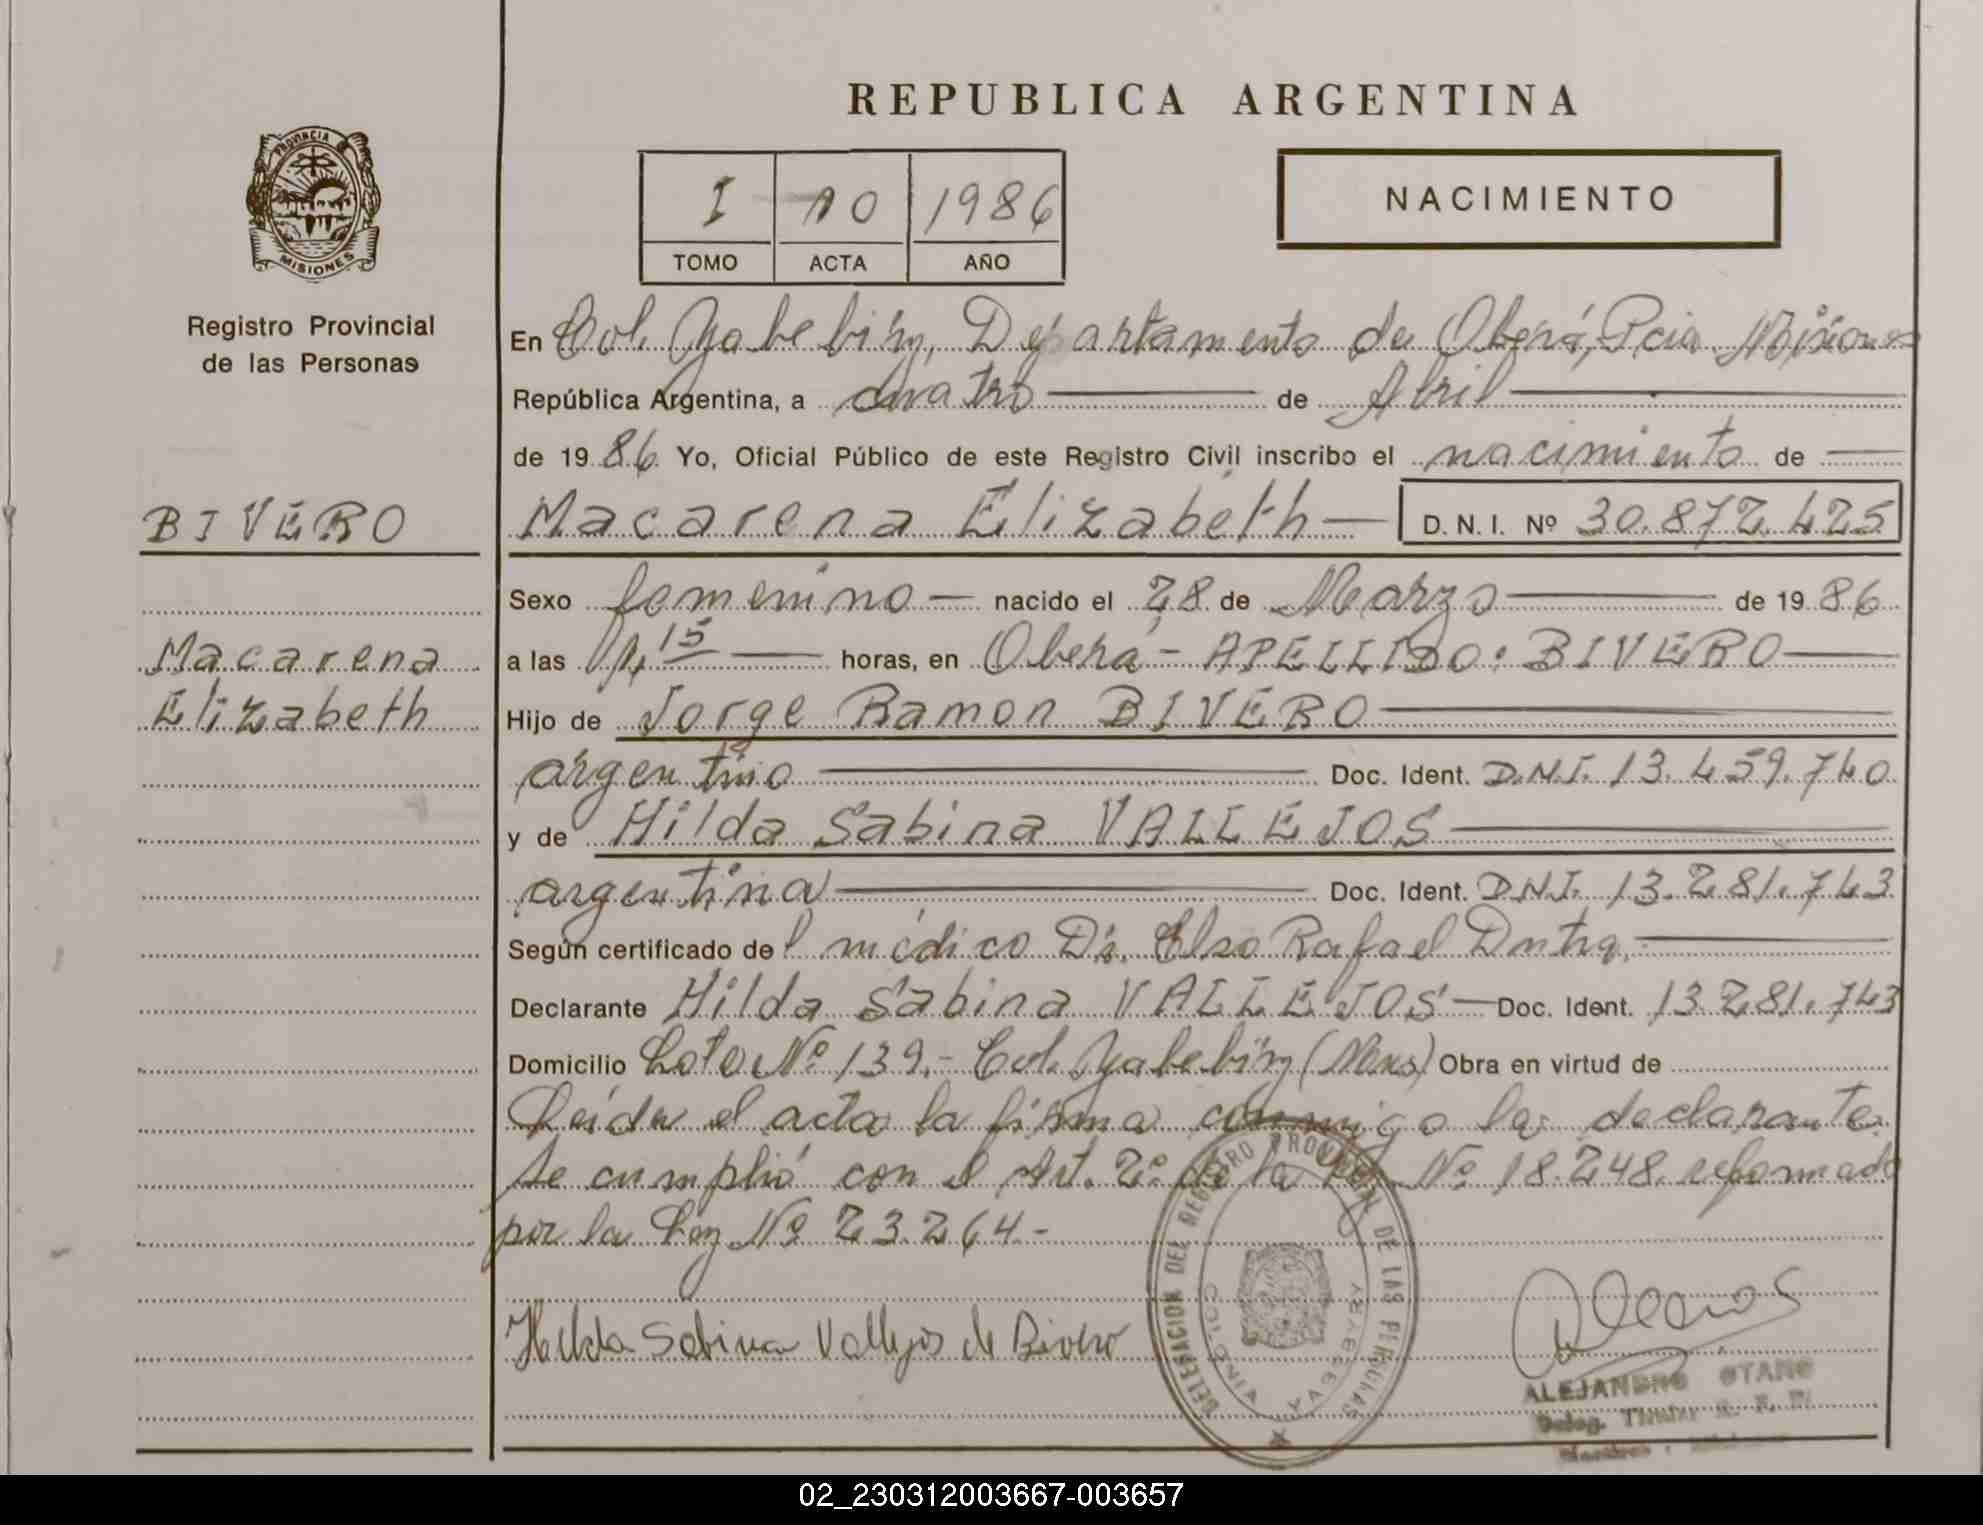 REPUBLICA ARGENTINA
PROVINCIA
MISIONES
Registro Provincial
de las Personas
I 10 1986
TOMO ACTA AÑO
NACIMIENTO
En Col. Yabebiry, Departamento de Oberá, Pcia. Misiones
República Argentina, a cuatro de Abril
de 19 86. Yo, Oficial Público de este Registro Civil inscribo el nacimiento de
BIVERO
Macarena Elizabeth D. N. I. Nº 30.872.425
Sexo femenino nacido el 28 de Marzo de 19 86
Macarena
a las 15 horas, en Oberá - APELLIDO: BIVERO
Elizabeth
Hijo de Jorge Ramon BIVERO
argentino Doc. Ident. D.N.I. 13.459.740
y de Hilda Sabina VALLEJOS
argentina Doc. Ident. D.N.I. 13.281.743
Según certificado del médico Dr. Elso Rafael
Declarante Hilda Sabina VALLEJOS Doc. Ident. 13.281.743
Domicilio Lote Nº 139.- Col. Yabebiry (Mnes) Obra en virtud de
Leída el acta la firma conmigo la declarante.
Se cumplió con el Art. 2º de la Ley Nº 18.248. reformado
por la Ley Nº 23.264.-
Hilda Sabina Vallejos de Bivero
DELEGACION DEL REGISTRO PROVINCIAL DE LAS PERSONAS
COLONIA YABEBYRY
ALEJANDRO OTAÑO
Deleg. Titular R. P. P.
02_230312003667-003657